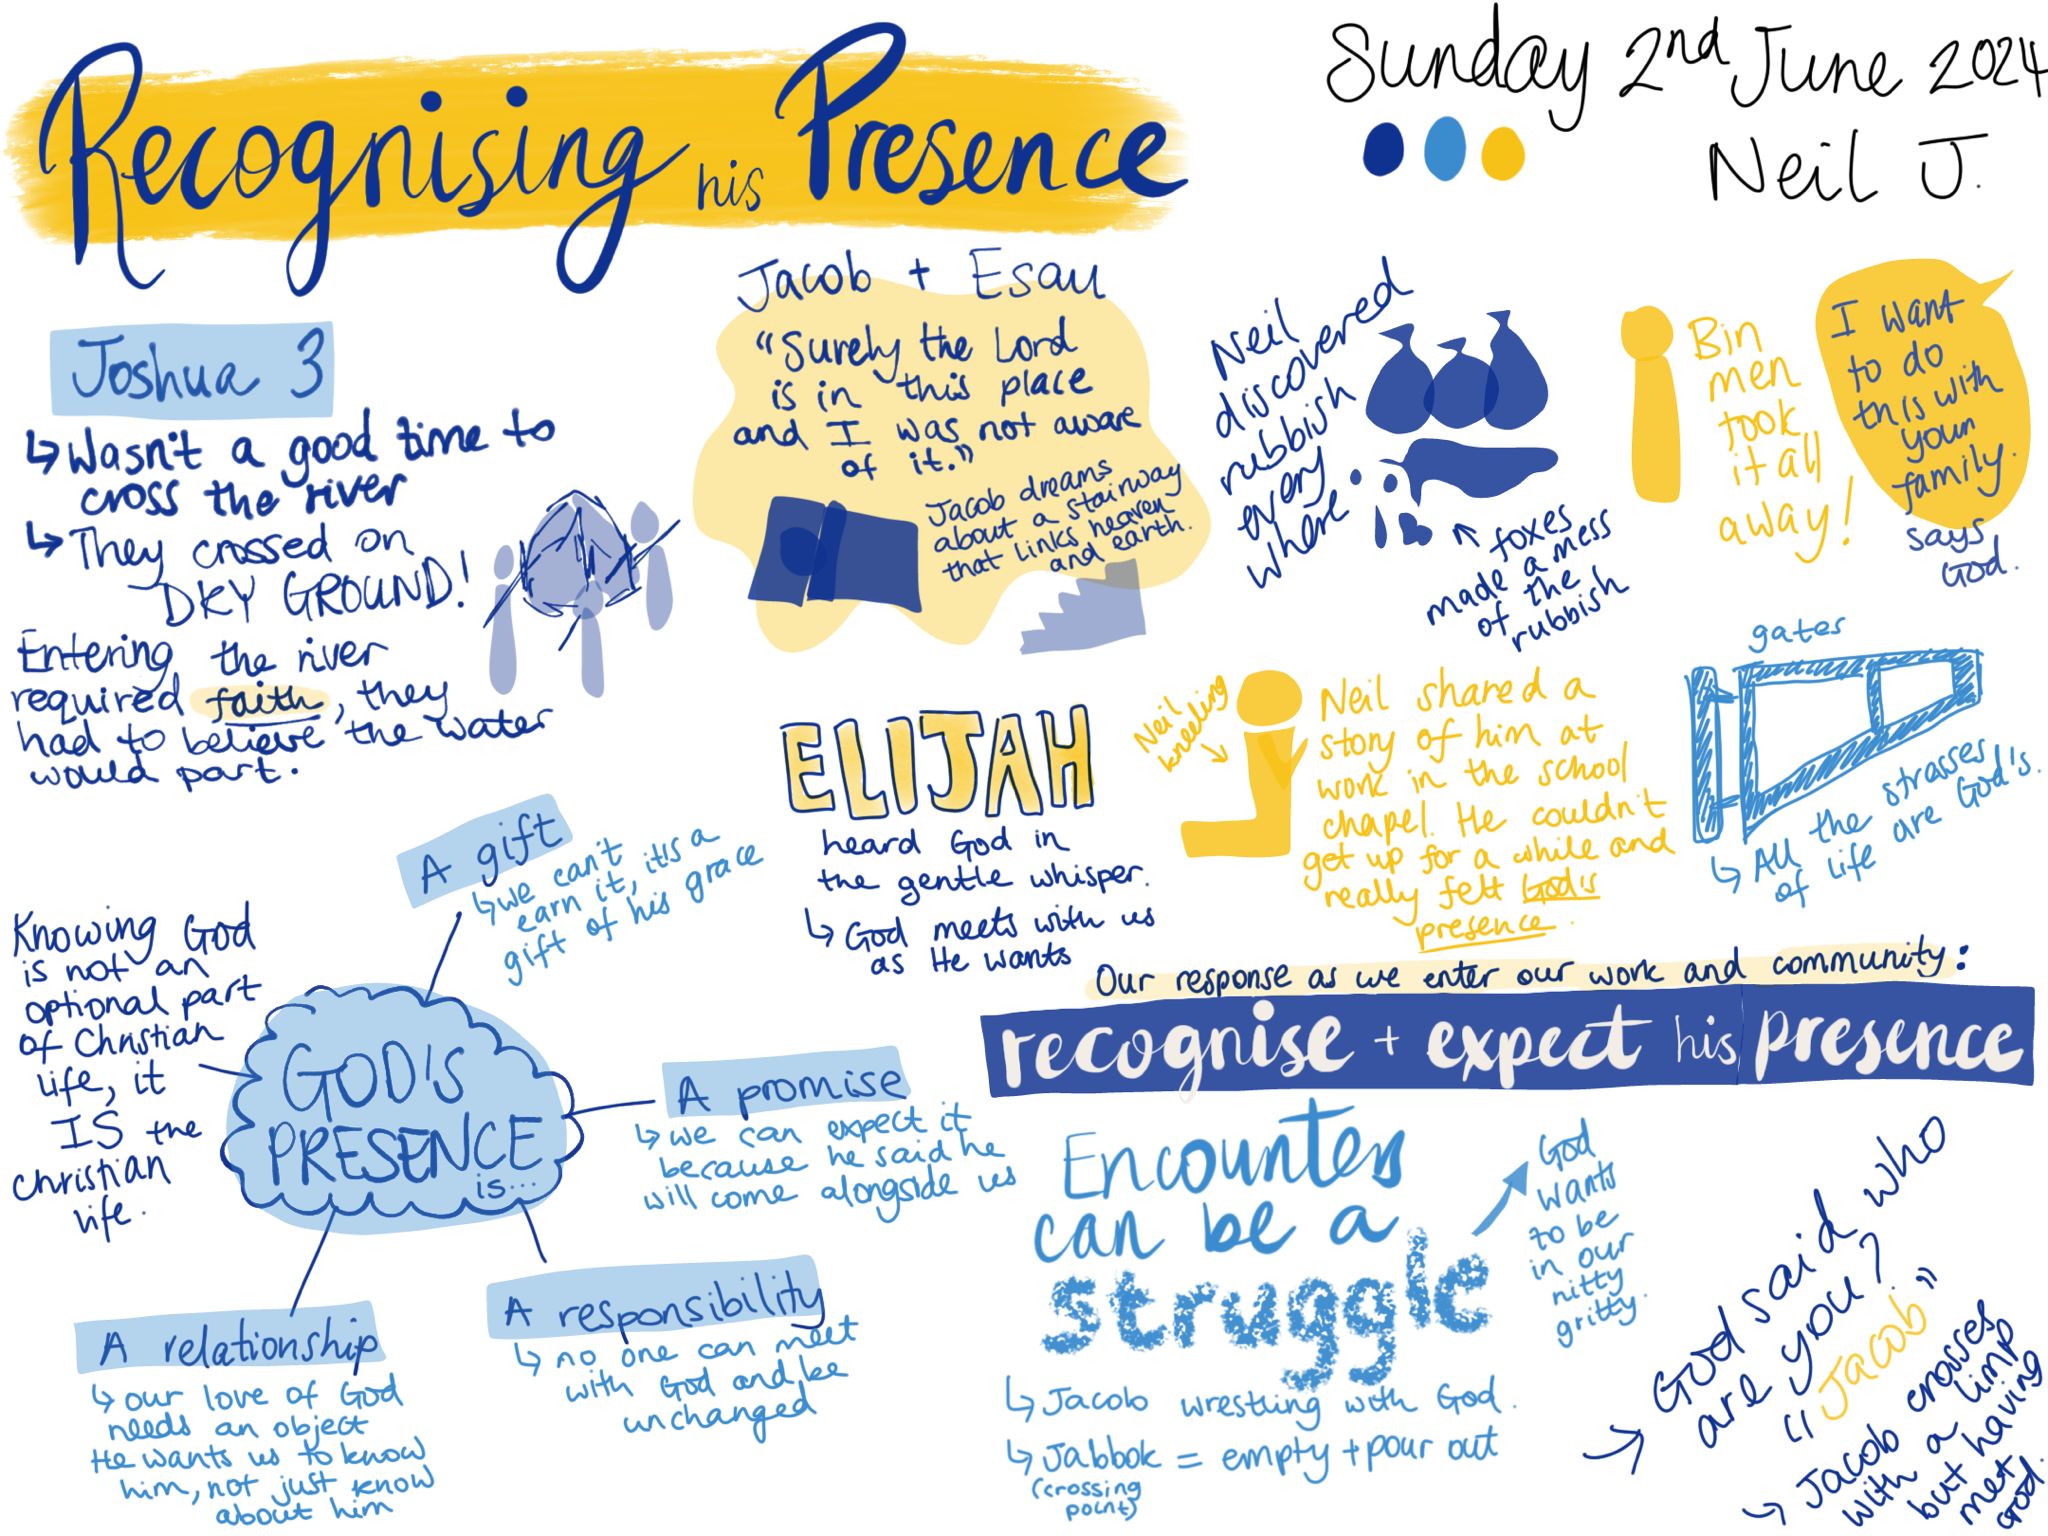 Recognising his Presence
Sunday 2nd June 2024
Neil J.
Joshua 3
↳ Wasn't a good time to
cross the river
↳ They crossed on
DRY GROUND!
Entering the river
required faith, they
had to believe the water
would part.
Jacob + Esau
"Surely the Lord
is in this place
and I was not aware
of it."
Jacob dreams
about a stairway
that links heaven
and earth.
Neil
discovered
rubbish
every
where
↖ foxes
made a mess
of the
rubbish
Bin
men
took
it all
away!
I want
to do
this with
your
family.
says
God.
ELIJAH
heard God in
the gentle whisper.
↳ God meets with us
as He wants
Neil
kneeling
Neil shared a
story of him at
work in the school
chapel. He couldn't
get up for a while and
really felt God's
presence.
gates
↳ All the strasses
of life are God's.
Our response as we enter our work and community:
recognise + expect his presence
GOD'S
PRESENCE
is...
Knowing God
is not an
optional part
of Christian
life, it
IS the
christian
life.
A gift
↳ we can't
earn it, it's a
gift of his grace
A promise
↳ we can expect it
because he said he
will come alongside us
A responsibility
↳ no one can meet
with God and be
unchanged
A relationship
↳ our love of God
needs an object
He wants us to know
him, not just know
about him
Encounters
can be a
struggle
God
wants
to be
in our
nitty
gritty.
↳ Jacob wrestling with God.
↳ Jabbok = empty + pour out
(crossing
point)
→ God said who
are you?
"Jacob"
↳ Jacob crosses
with a limp
but having
met
God.